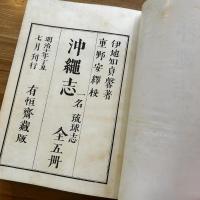 伊地知貞馨著
重野安繹校
沖繩志 一名 琉球志 全五冊
明治十年丁丑
七月刊行
有恒齋藏版